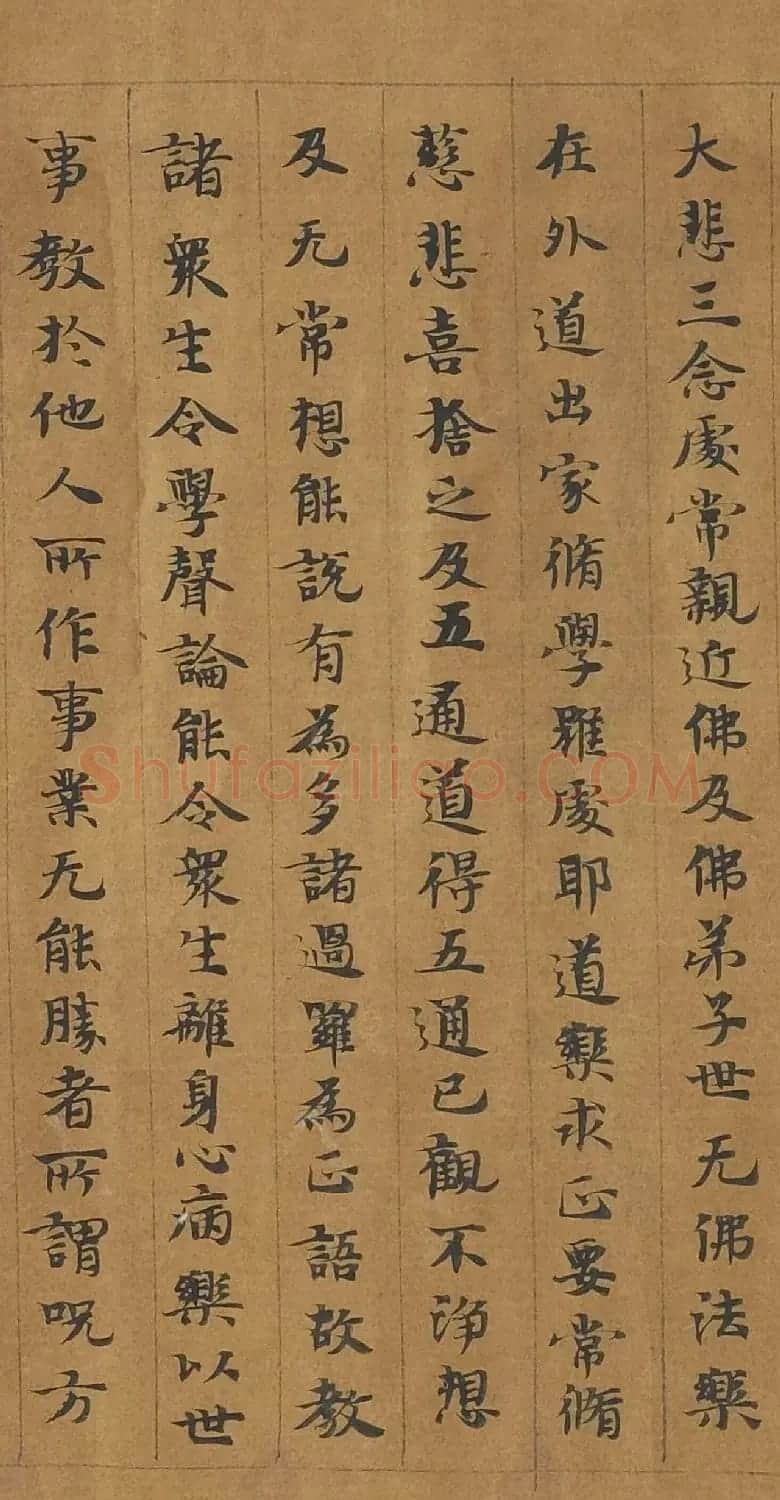 大悲三念處常親近佛及佛弟子世无佛法樂
在外道出家脩學雖處耶道樂求正要常脩
慈悲喜捨之及五通道得五通已觀不淨想
及无常想能說有為多諸過雖為正語故教
諸衆生令學聲論能令衆生離身心病樂以世
事教於他人所作事業无能勝者所謂呪方
Shufaziliao.COM